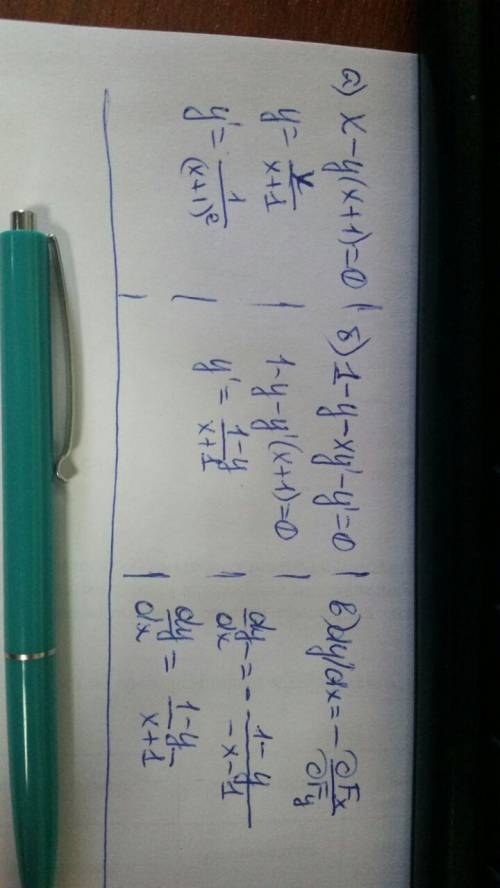 а) x-y(x+1)=0
y=x/(x+1)
y'=1/(x+1)²
б) 1-y-xy'-y'=0
1-y-y'(x+1)=0
y'=(1-y)/(x+1)
в) dy/dx=-∂Fx/∂Fy
dy/dx=-(1-y)/(-x-1)
dy/dx=(1-y)/(x+1)